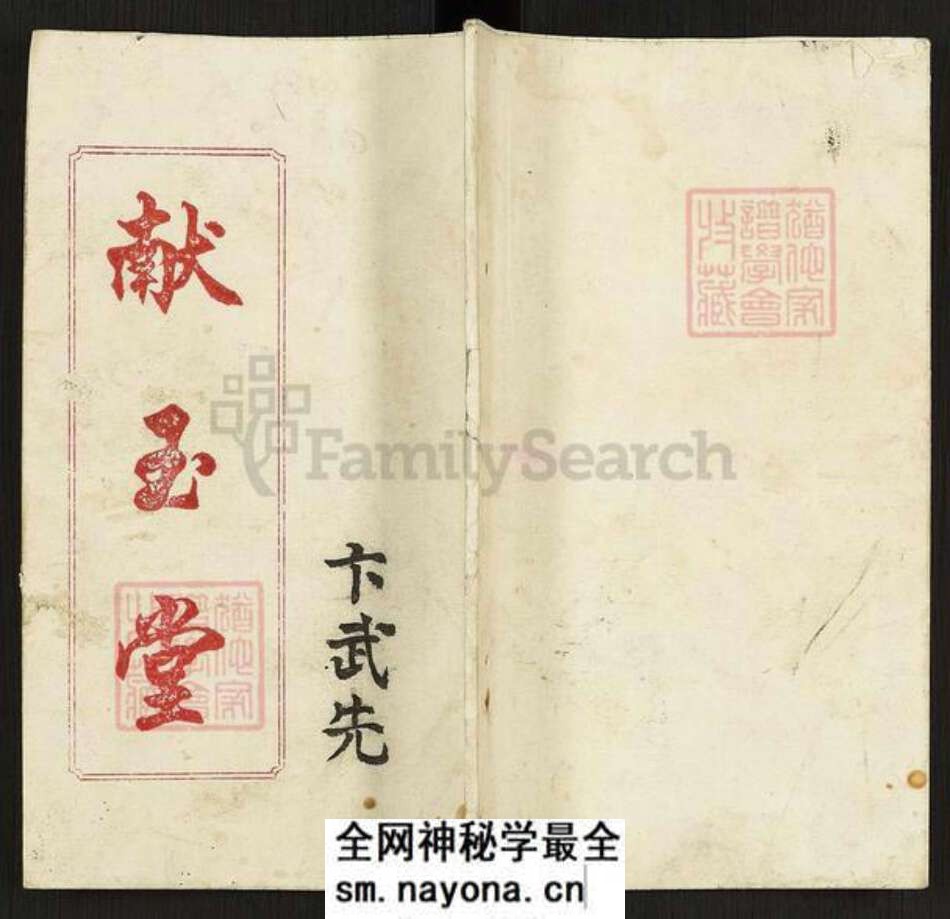 献玉堂
卞武先
猶他家
譜學會
收藏
FamilySearch
全网神秘学最全
sm.nayona.cn